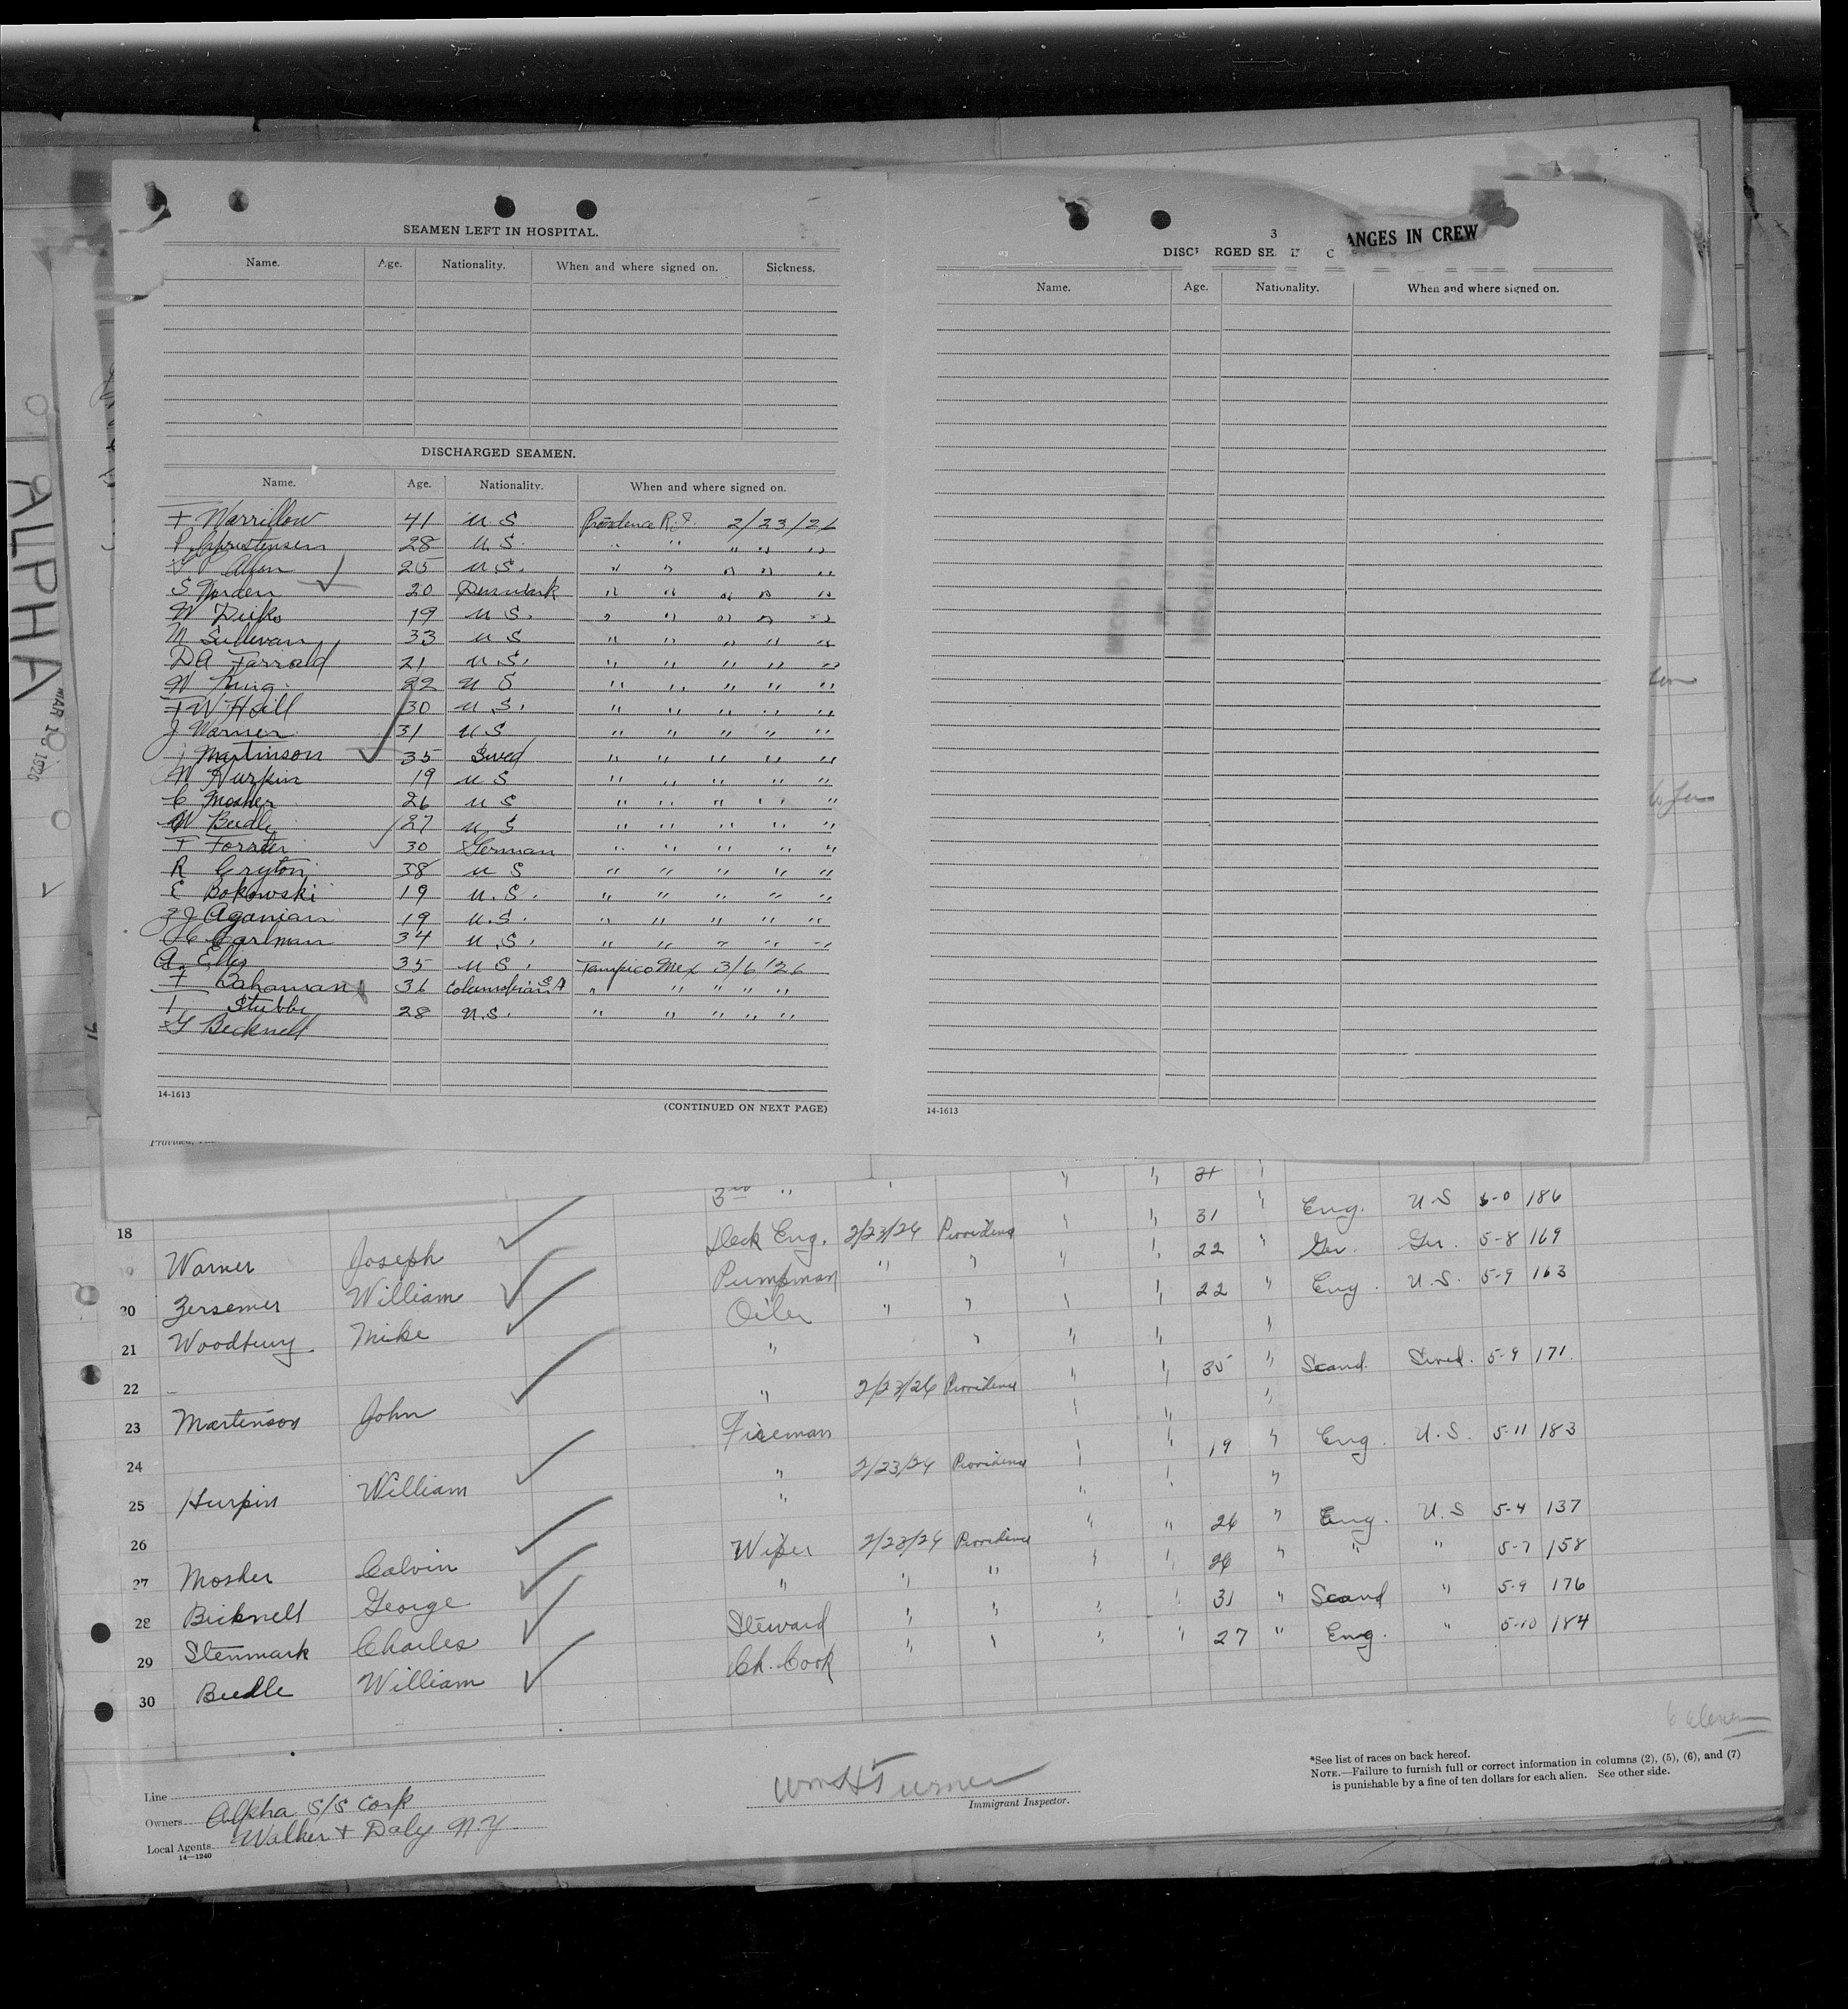 SEAMEN LEFT IN HOSPITAL.
Name. Age. Nationality. When and where signed on. Sickness.
DISCHARGED SEAMEN.
Name. Age. Nationality. When and where signed on.
F Warrillow 41 U S Providence R.I. 2/23/26
P Christensen 28 U.S. " " " " "
P Allen 25 U.S. " " " " "
S Norden 20 Denmark " " " " "
W Dirks 19 U S. " " " " "
M Sullivan 33 U S " " " " "
DA Farrald 21 U.S. " " " " "
W King 22 U S " " " " "
F W Hall 30 U.S. " " " " "
J Warner 31 U S " " " " "
J Martinson 35 Swed " " " " "
W Hurpin 19 U S " " " " "
C Mosher 26 U S " " " " "
W Beedle 27 U S " " " " "
F Forster 30 German " " " " "
R Gryton 38 U S " " " " "
E Bokowski 19 U.S. " " " " "
J Aganian 19 U.S. " " " " "
Carlman 34 U.S. " " " " "
A. Ellis 35 U S. Tampico Mex 3/6/26
F Bahaman 36 Columbian S.A " " " " "
Stubbe 28 U.S. " " " " "
G Becknell
14-1613
(CONTINUED ON NEXT PAGE)
3
ANGES IN CREW
DISC RGED SE
Name. Age. Nationality. When and where signed on.
14-1613
ALPHA
MAR 1926
3rd " " " " 31 "
18 Warner Joseph Deck Eng. 2/23/26 Providence " " 31 " Eng. U.S 6-0 186
19 Zersemer William Pumpman " " " " 22 " Ger. Ger. 5-8 169
20 Woodbury Mike Oiler " " " " 22 " Eng. U.S. 5-9 163
21 " " " " "
22 Martenson John " 2/23/26 Providence " " 35 " Scand. Swed. 5-9 171.
23 Fireman " " "
24 Hurpin William " 2/23/26 Providence " " 19 " Eng. U.S. 5-11 183
25 " " " "
26 Mosher Calvin Wiper 2/23/26 Providence " " 26 " Eng. U.S 5-4 137
27 Bicknell George " " " " " 26 " " " 5-7 158
28 Stenmark Charles Steward " " " " 31 " Scand " 5-9 176
29 Beedle William Ch. Cook " " " " 27 " Eng. " 5-10 184
30
Line
Owners Alpha S/S Corp
Local Agents Walker & Daly N.Y
14-1240
Wm H Turner
Immigrant Inspector.
*See list of races on back hereof.
NOTE.—Failure to furnish full or correct information in columns (2), (5), (6), and (7)
is punishable by a fine of ten dollars for each alien. See other side.